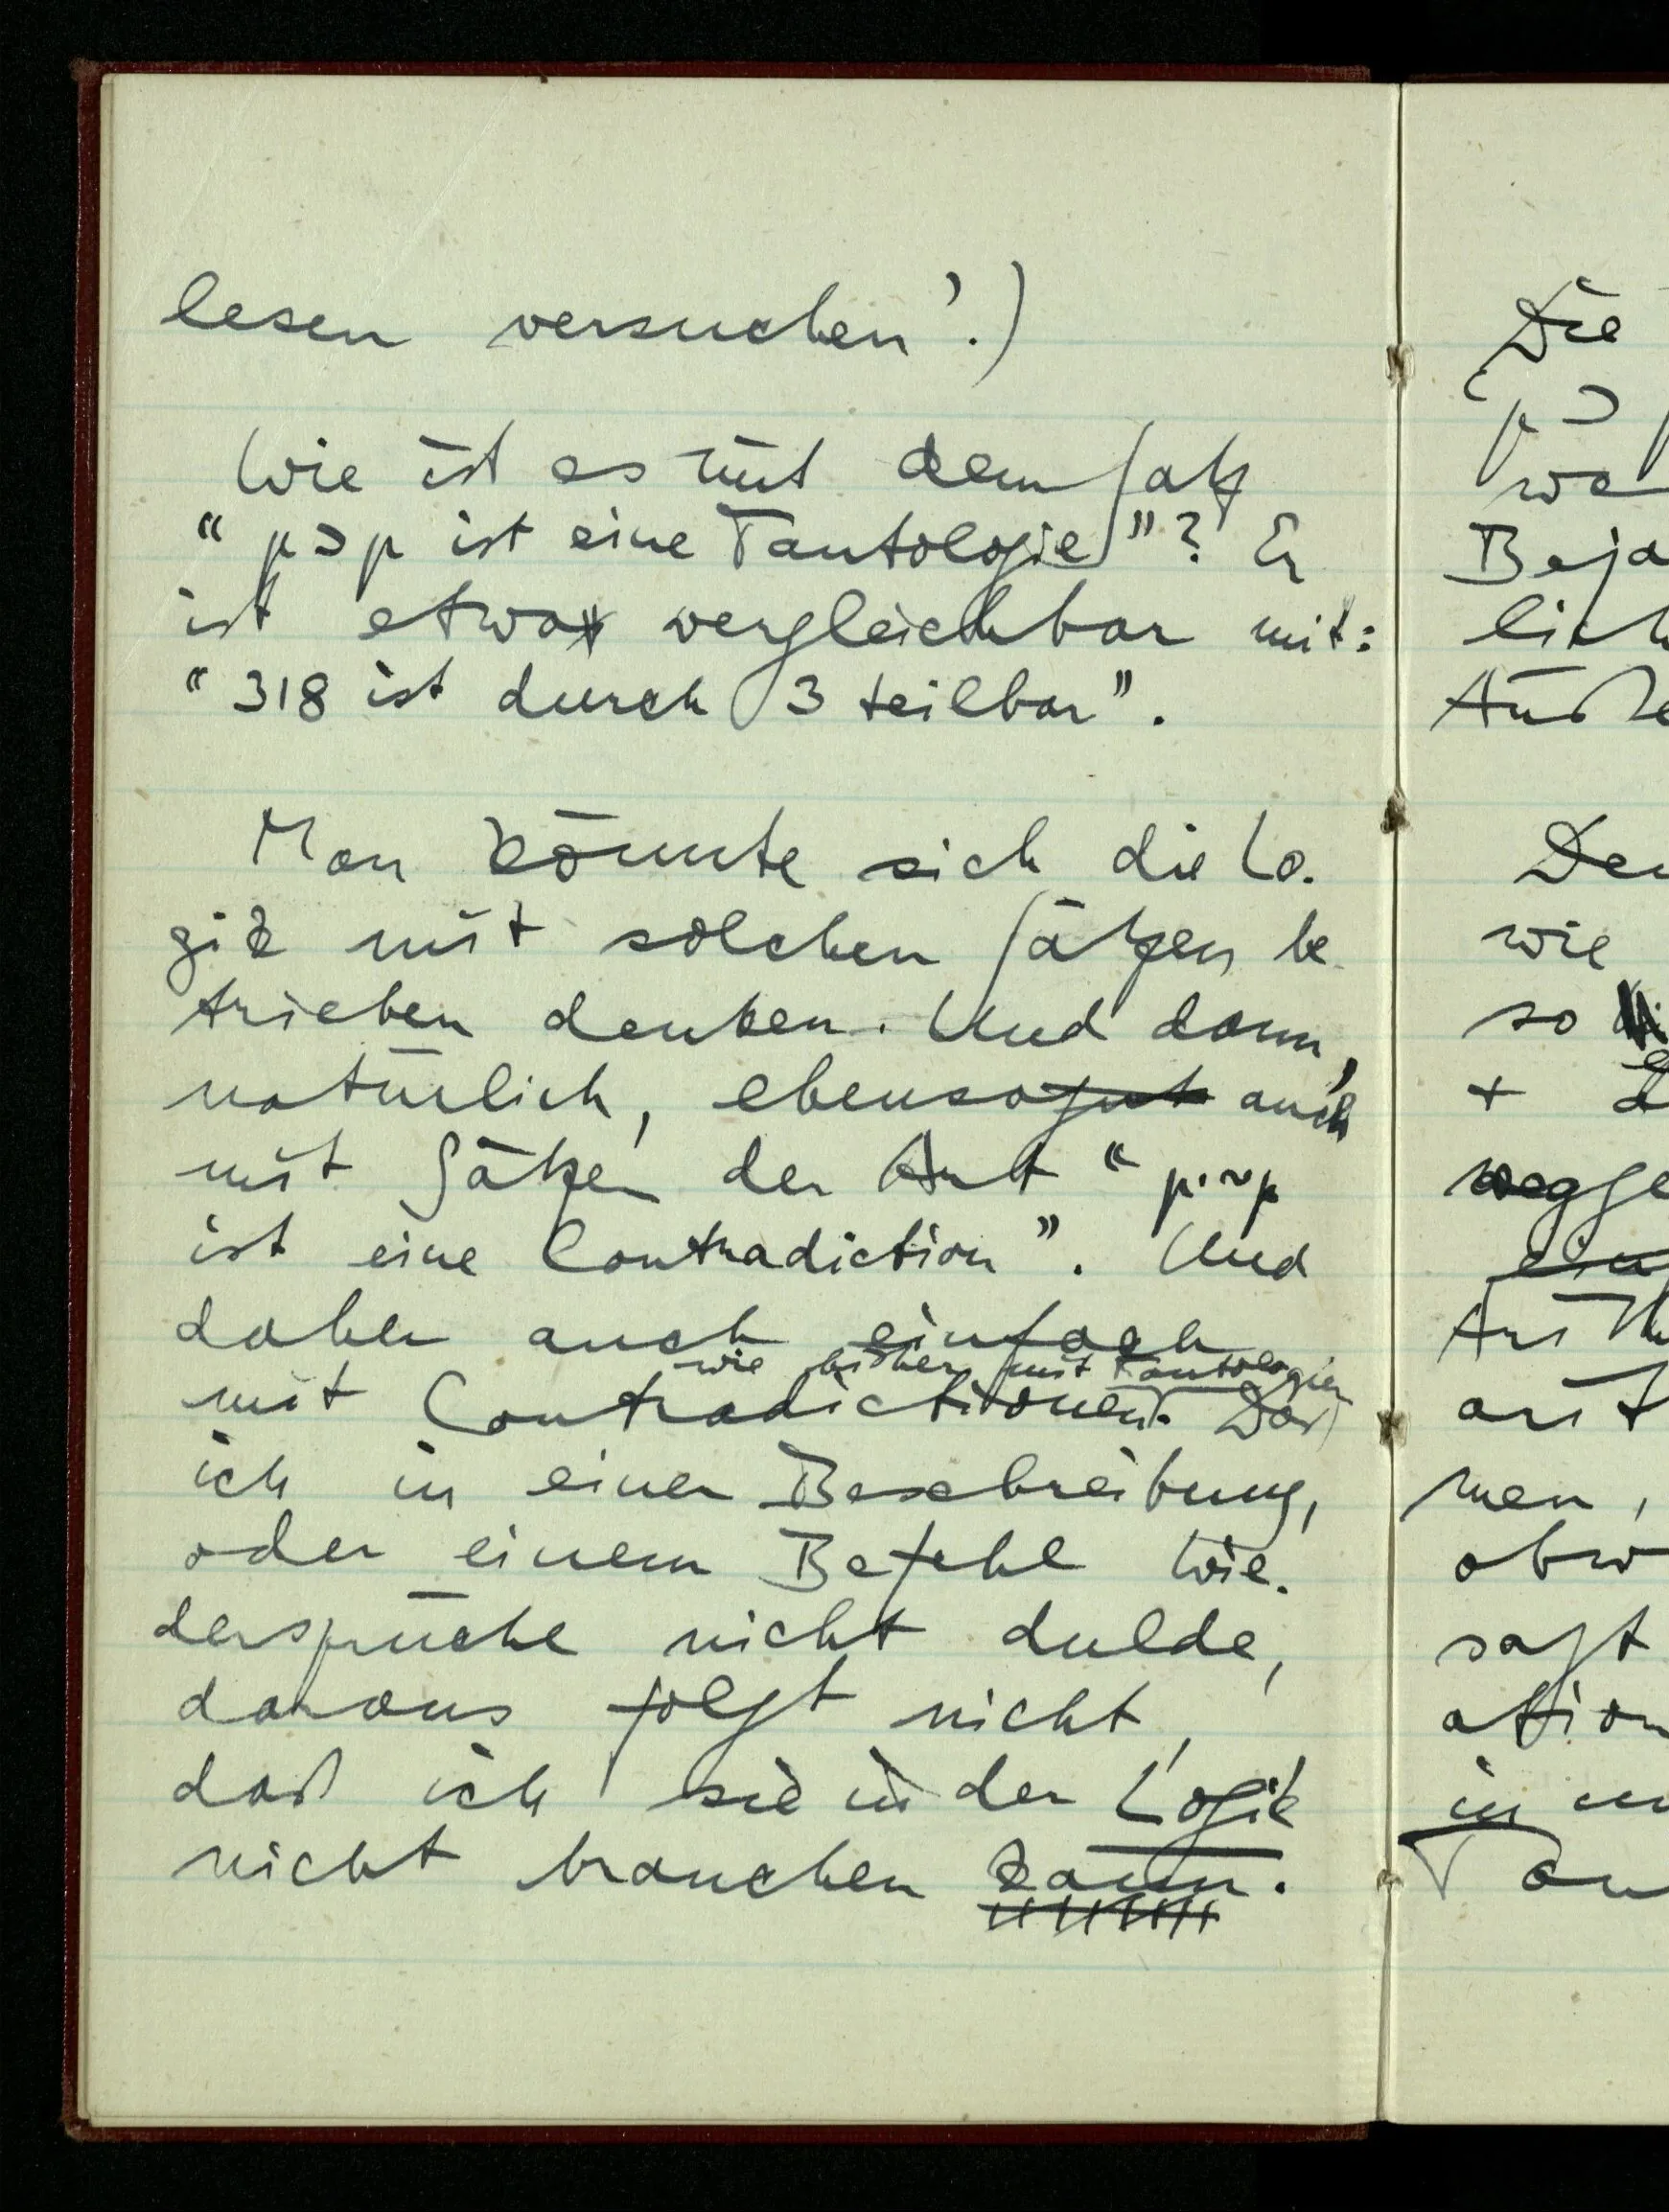 lesen versuchen'.)
Wie ist es mit dem Satz
“p⊃p ist eine Tautologie”? Er
ist etwa vergleichbar mit:
“318 ist durch 3 teilbar”.
Man könnte sich die Lo-
gik mit solchen Sätzen be-
trieben denken. Und dann,
natürlich, ebensogut auch
mit Sätzen der Art “p.~p
ist eine Contradiction”. Und
daher auch einfach
wie bisher mit Tautologien
mit Contradictionen. Daß
ich in einer Beschreibung,
oder einem Befehl Wie-
dersprüche nicht dulde,
daraus folgt nicht,
daß ich sie in der Logik
nicht brauchen kann.
Die
“p⊃
we
Beja
lich
Auße
Den
wie
so
+
wegge
ein
Arith
arit
men,
obw
sagt
ation
in un
Tau